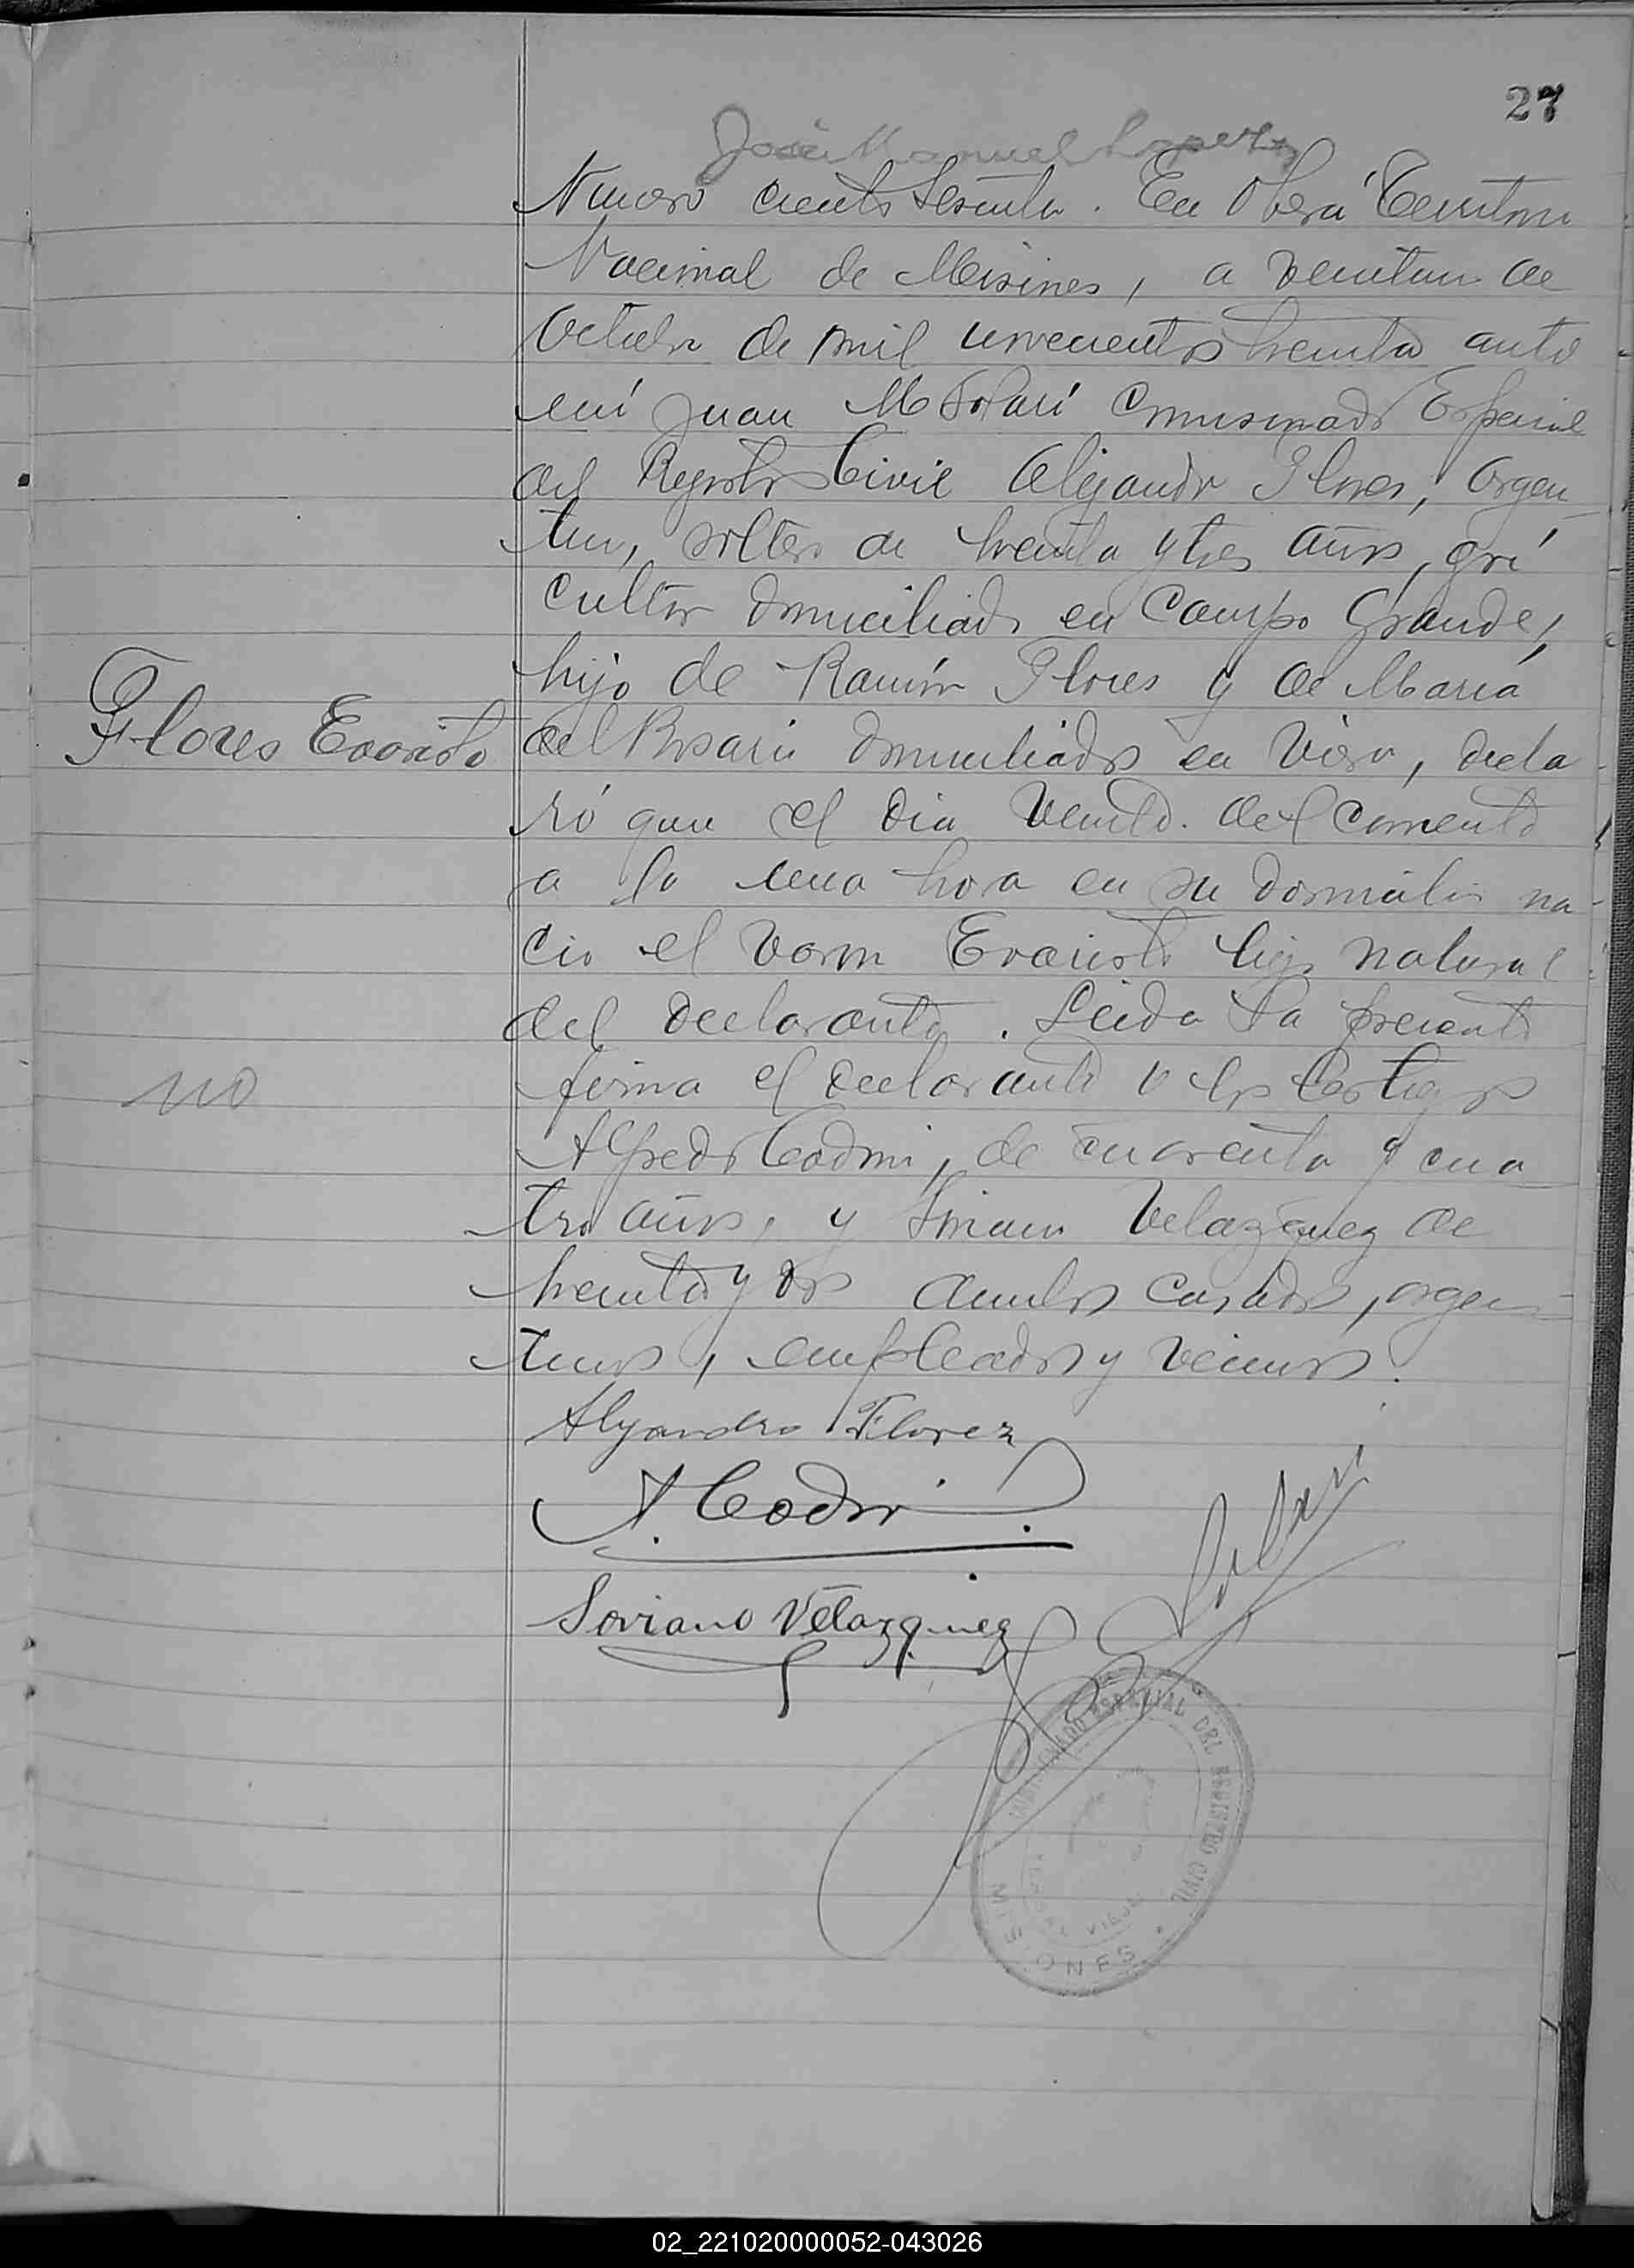 27
José Manuel Lopez
Numero ciento sesenta. En Oberá Territorio
Nacional de Misiones, a veintiun de
Octubre de mil novecientos treinta ante
mí Juan M Solari Comisionado Especial
del Registro Civil Alejandro Flores, Argen
tino, soltero de treinta y tres años, gri
cultor domiciliado en Campo Grande,
hijo de Ramón Flores y de María
del Rosario domiciliados en, decla
ró que el dia veinte del corriente
a la una hora en su domicilio na
cio el varon Evaristo hijo natural
del declarante. Leida la presente
firma el declarante y los testigos
Alfredo Codini, de cuarenta y cua
tro años, y Soriano Velazquez de
treinta y dos ambos casados, argen
tinos, empleados y vecinos.
Flores Evaristo
no
Alejandro Florez
A. Codini
Soriano Velazquez
Solari
COMISIONADO ESPECIAL DEL REGISTRO CIVIL
MISIONES
02_221020000052-043026